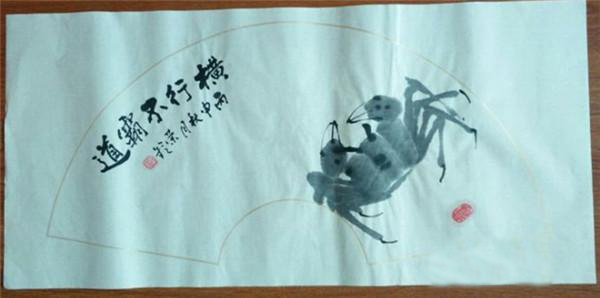 横行不霸道
丙申秋月荣